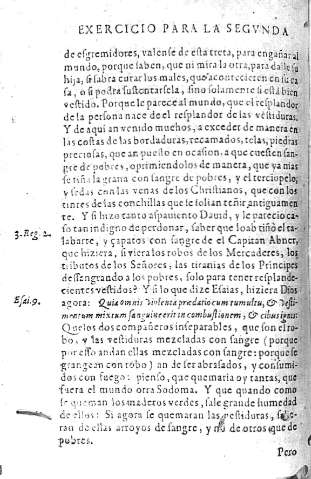 EXERCICIO PARA LA SEGVNDA
de esgremidores, valense de esta treta, para engañar al
mundo, porque saben, que ni mira la otra, para dalle su
hija, si sabra curar los males, que acontecieren en su ca
sa, o si podra sustentarsela, sino solamente si està bien
vestido. Porque le parece al mundo, que el resplandor
de la persona nace del resplandor de las vestiduras.
Y de aqui an venido muchos, a exceder de manera en
las costas de las bordaduras, recamados, telas, piedras
preciosas, que an puesto en ocasion, a que cuesten san-
gre de pobres, oprimiendolos de manera, que ya mas
se tiña la grana con sangre de pobres, y el terciopelo,
y sedas con las venas de los Christianos, que con los
tintes de las conchillas que se solian teñir antiguamen
te. Y si hizo tanto aspaviento David, y le parecio ca-
so tan indigno de perdonar, saber que Ioab tiño el ta-
3. Reg. 2.
labarte, y çapatos con sangre de el Capitan Abner,
que hiziera, si viera los robos de los Mercaderes, los
tributos de los Señores, las tiranias de los Principes
dessengrando a los pobres, solo para tener resplande-
cientes vestidos? Y si lo que dize Esaias, hiziera Dios
Esai. 9.
agora: Quia omnis violenta prædatio cum tumultu, & vesti-
mentum mixtum sanguine erit in combustionem, & cibus ignis:
Quelos dos compañeros inseparables, que son el ro-
bo, y las vestiduras mezcladas con sangre (porque
por esso andan ellas mezcladas con sangre: porque se
grangean con robo) an de ser abrasados, y consumi-
dos con fuego: pienso, que quemaria oy tantas, que
fuera el mundo otra Sodoma. Y que quando como
se queman los maderos verdes, sale grande humedad
de ellos: Si agora se quemaran las vestiduras, salie-
ran de ellas arroyos de sangre, y no de otros que de
pobres.
Pero